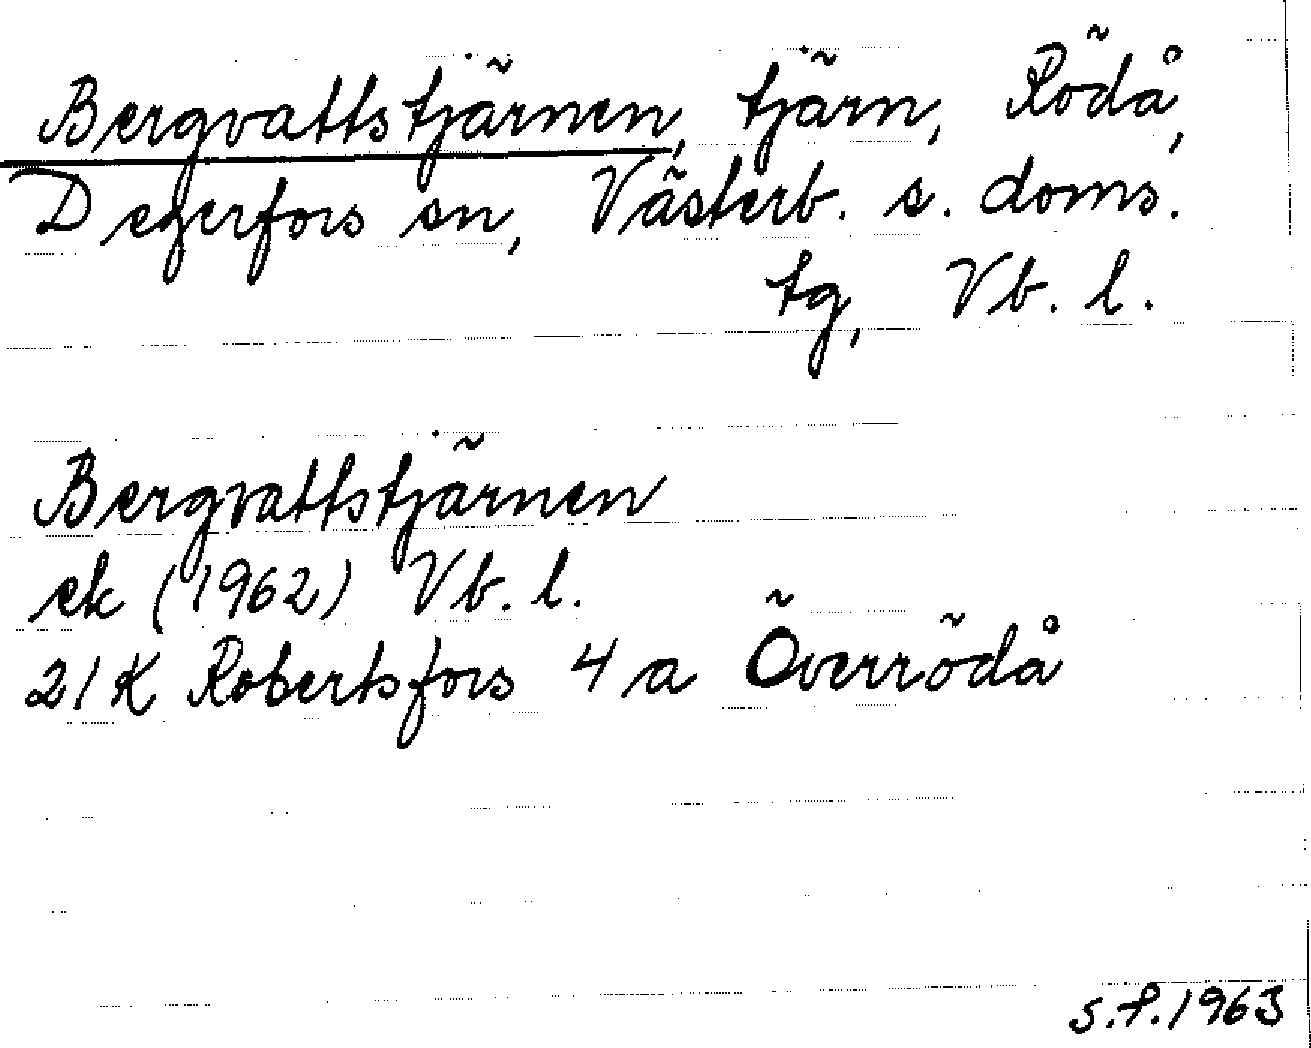 Bergvattstjärnen, tjärn, Rödå,
Degerfors sn, Västerb. s. doms.
tg, Vb. l.
Bergvattstjärnen
ek (1962) Vb. l.
21K Robertsfors 4a Överrödå
S.P. 1963